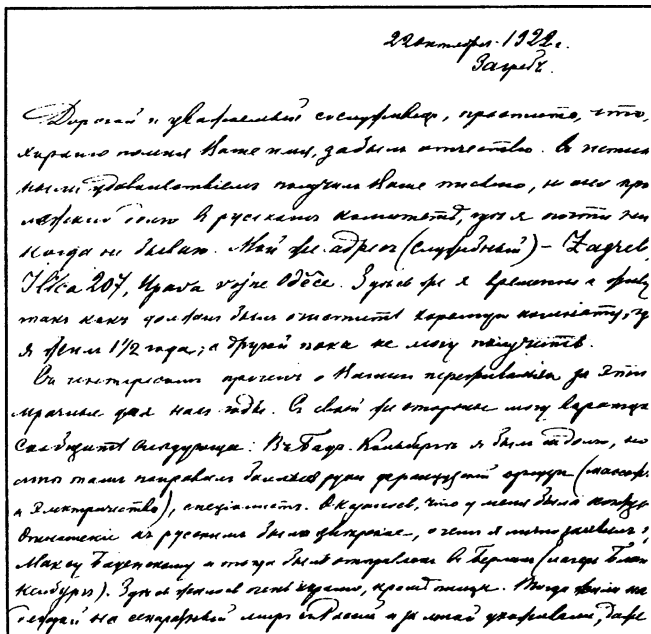 22 октября 1922 г.
Загребъ.
Дорогой и уважаемый сослуживец, простите, что,
хорошо помня Ваше имя, забылъ отчество. Съ истин
нымъ удовольствіемъ получилъ Ваше письмо, но оно про
лежало долго въ русскомъ комитетѣ, гдѣ я почти ни
когда не бываю. Мой же адресъ (служебный) – Zagreb,
Ilica 207, Uprava vojne Oděće. Здѣсь же я временно и живу
такъ какъ долженъ былъ очистить хорошую комнату, гдѣ
я жилъ 1½ года; а другой пока не могу получить.
Съ интересомъ прочелъ о Вашихъ переживаніяхъ за эти
мрачные для насъ годы. Съ своей же стороны могу вкратцѣ
сообщить слѣдующее: Въ Бадъ-Кольбергѣ я былъ недолго, но
мнѣ тамъ поправилъ больную руку французскій (массаж
и электричество), спеціалистъ. Оказалось, что у меня была
Отношеніе къ русскимъ было, о чемъ я лично заявилъ
Максу Баденскому и тогда былъ отправленъ въ Берлинъ (лагерь Блан
кенбургъ). Здѣсь жилось очень хорошо, кромѣ пищи. Тогда
на сепаратный миръ съ Россіей и за мной ухаживали, даже